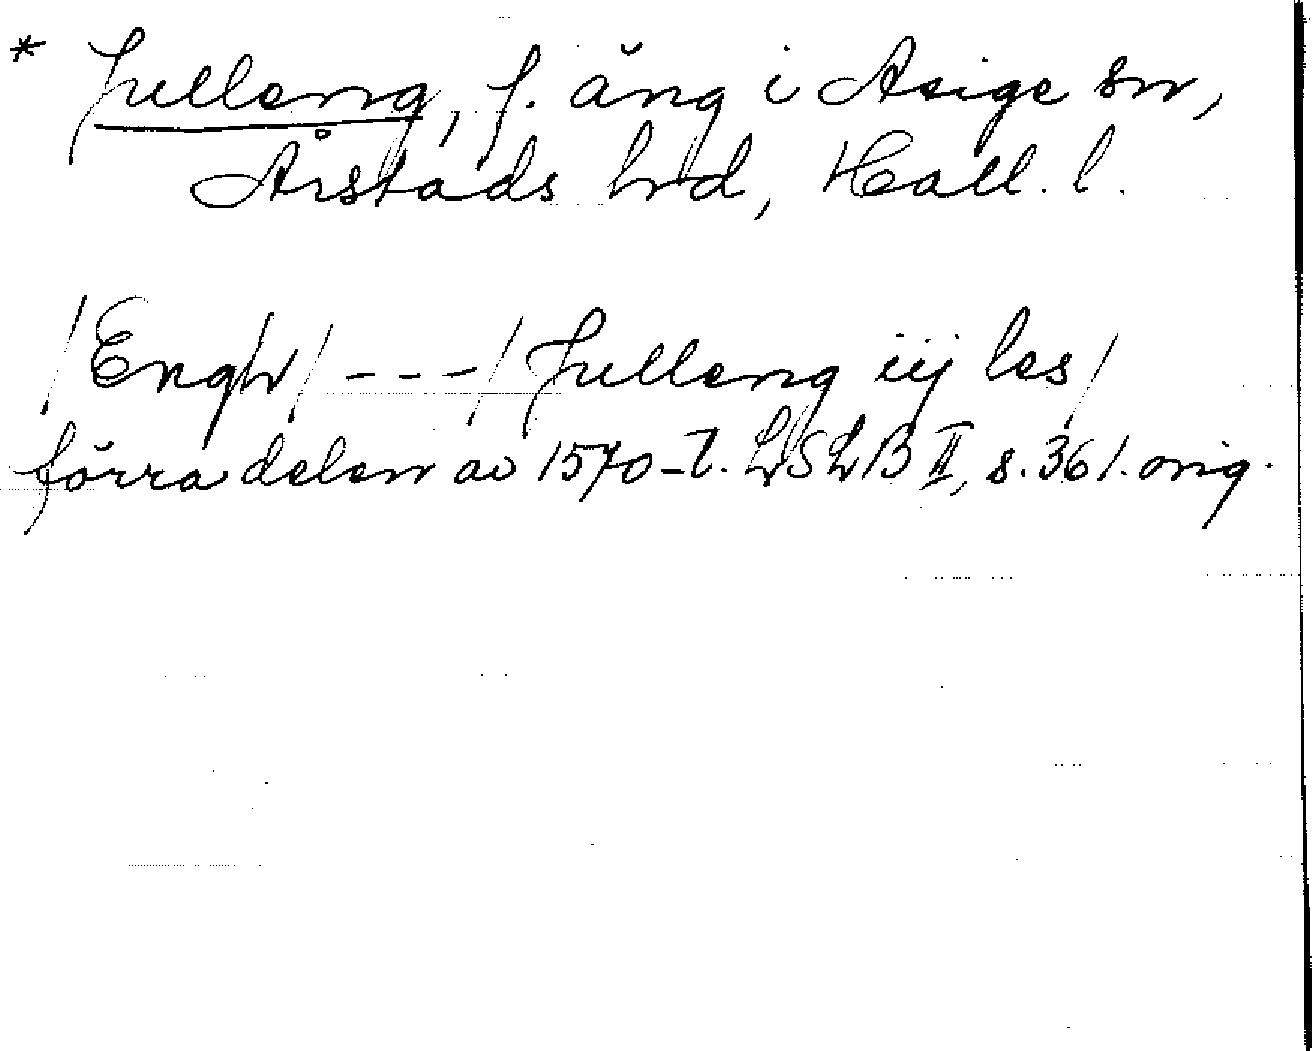 * Julleng, f. äng i Asige sn,
Årstads hrd, Hall. l.
/Engh/ - - - / Julleng iij les/
förra delen av 1570-t. LSLB II, s. 361. orig.